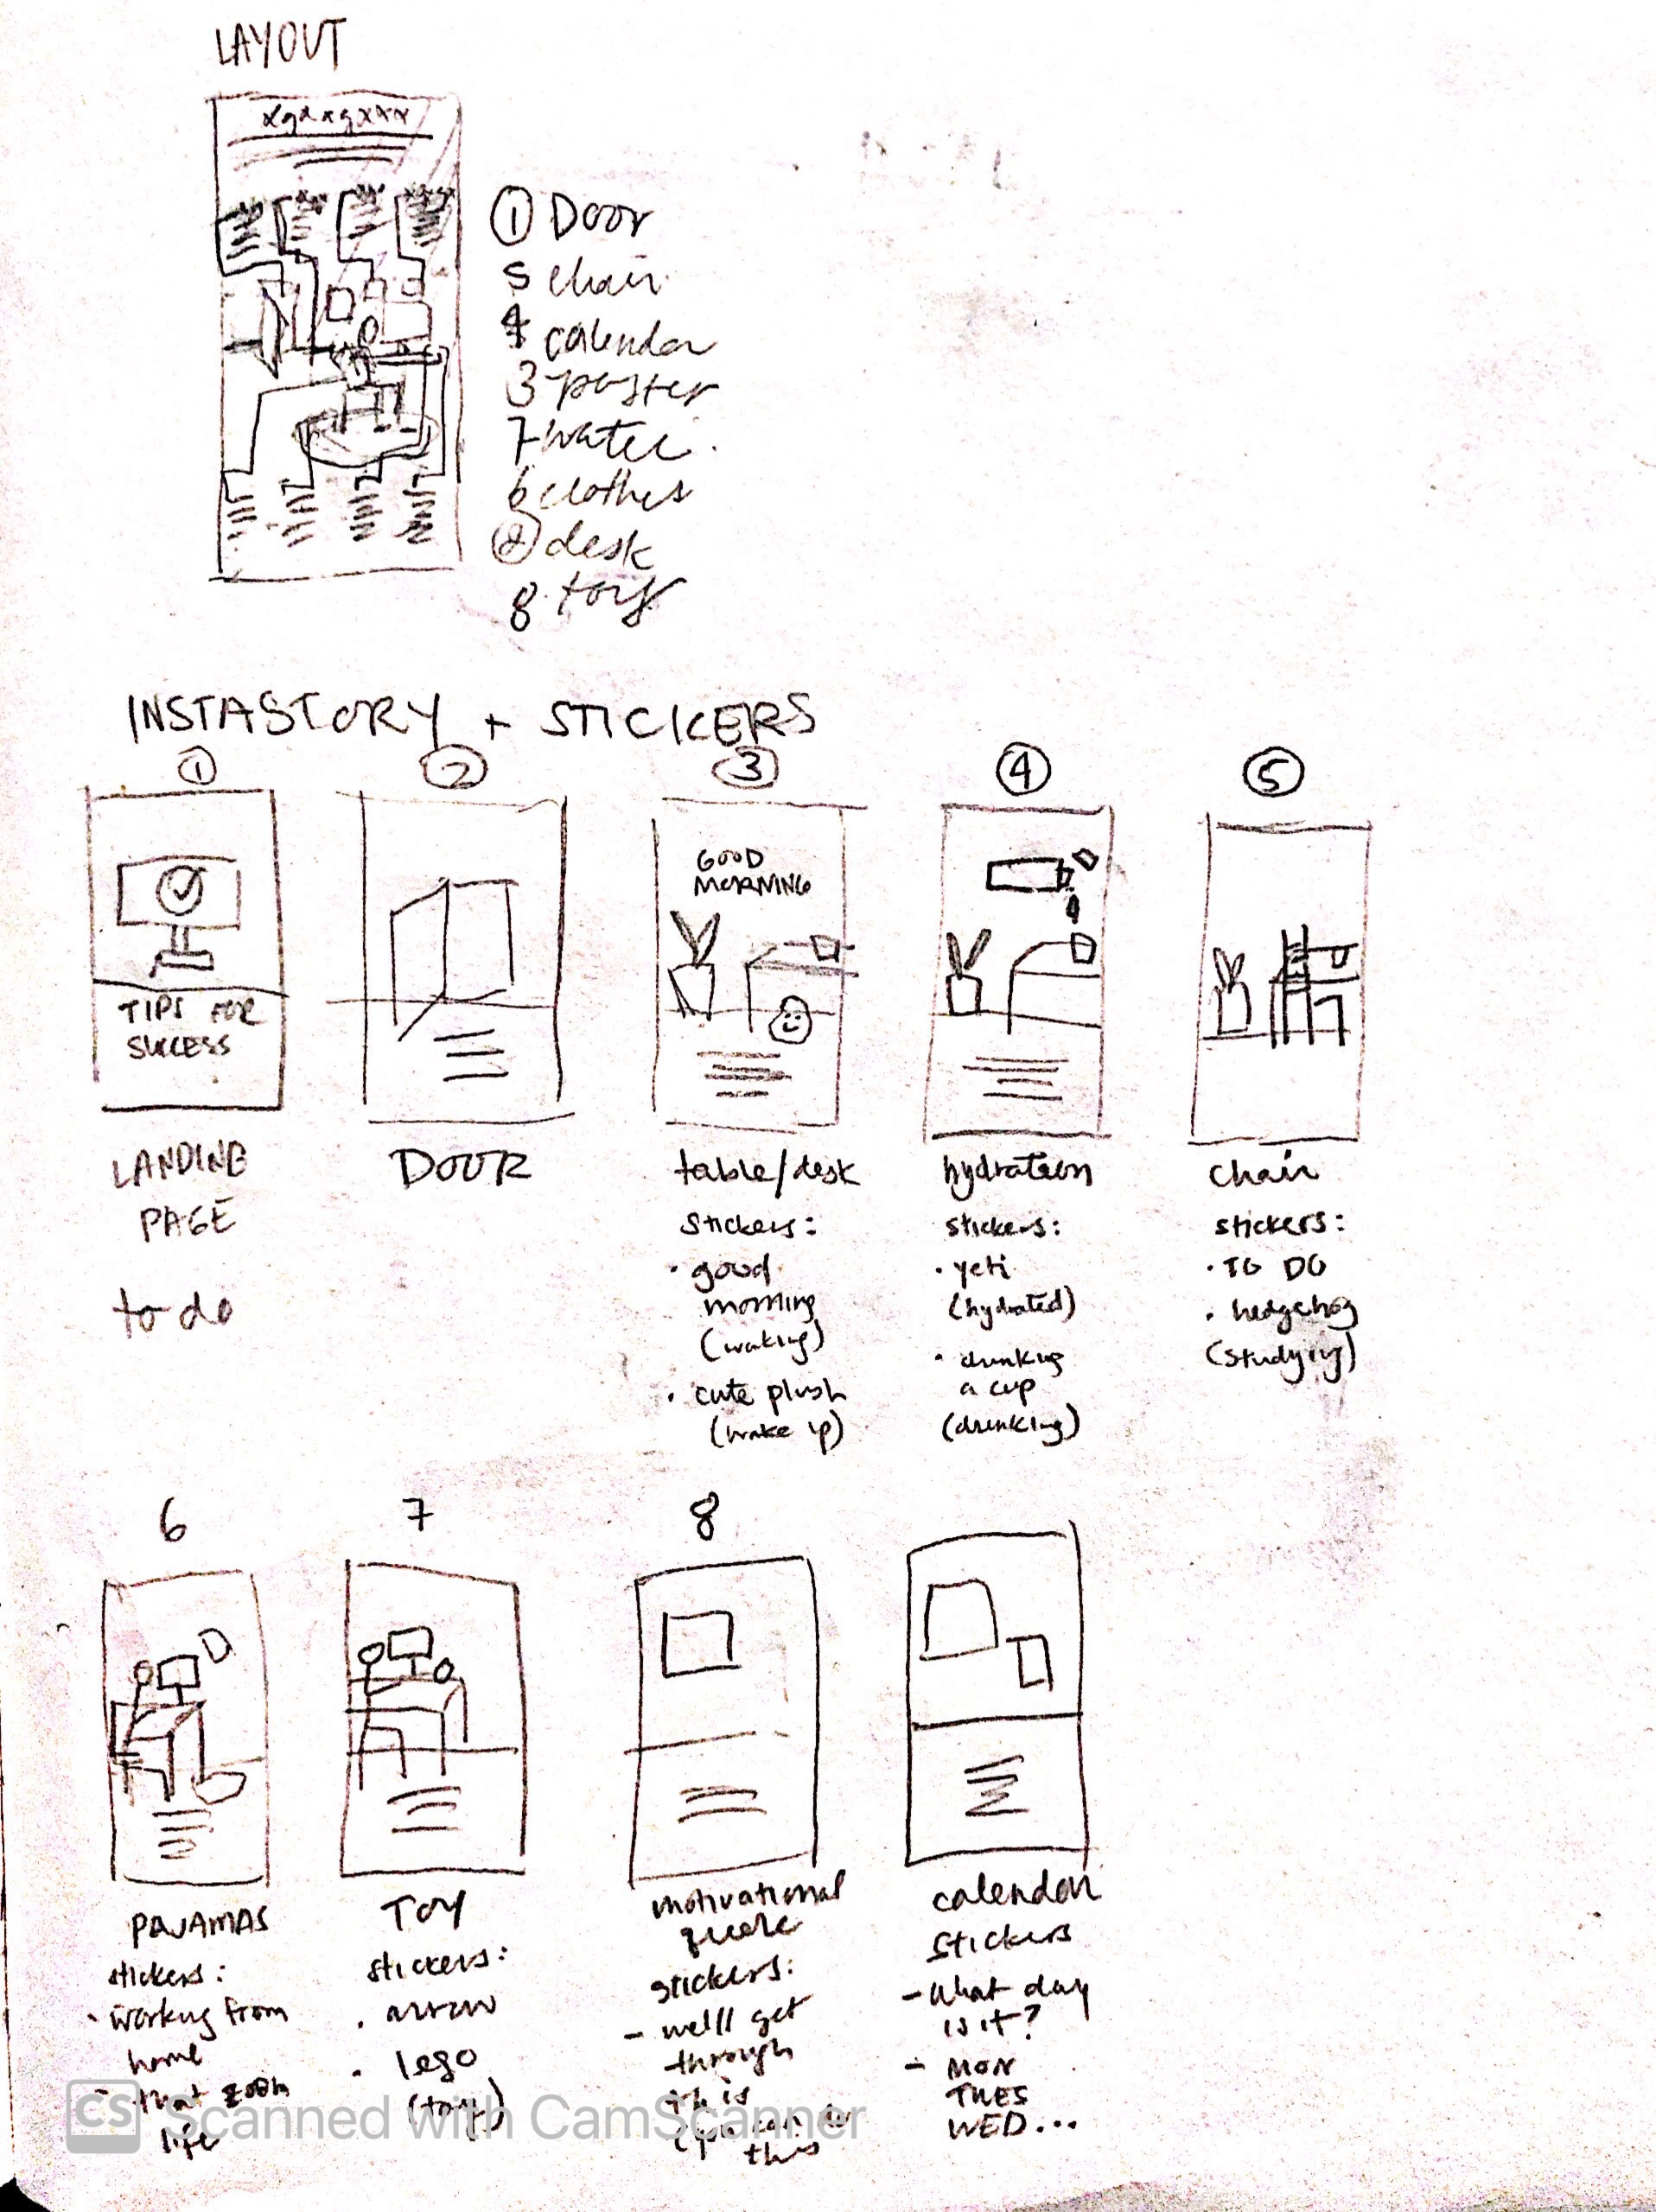 LAYOUT
① Door
5 chair
4 calendar
3 poster
7 water
6 clothes
② desk
8 toys
INSTASTORY + STICKERS
①
②
③
④
⑤
TIPS FOR
SUCCESS
GOOD
MORNING
LANDING
PAGE
to do
DOOR
table/desk
stickers:
• good
morning
(waking)
• cute plush
(wake up)
hydration
stickers:
• yeti
(hydrated)
• drinking
a cup
(drinking)
chair
stickers:
• TO DO
• hedgehog
(studying)
6
7
8
PAJAMAS
stickers:
• working from
home
- that zoom
life
TOY
stickers:
• arrow
• lego
(toy)
motivational
quote
stickers:
- we'll get
through
this
(you can do
this
calendar
stickers
- What day
is it?
- MON
TUES
WED...
CS Scanned with CamScanner